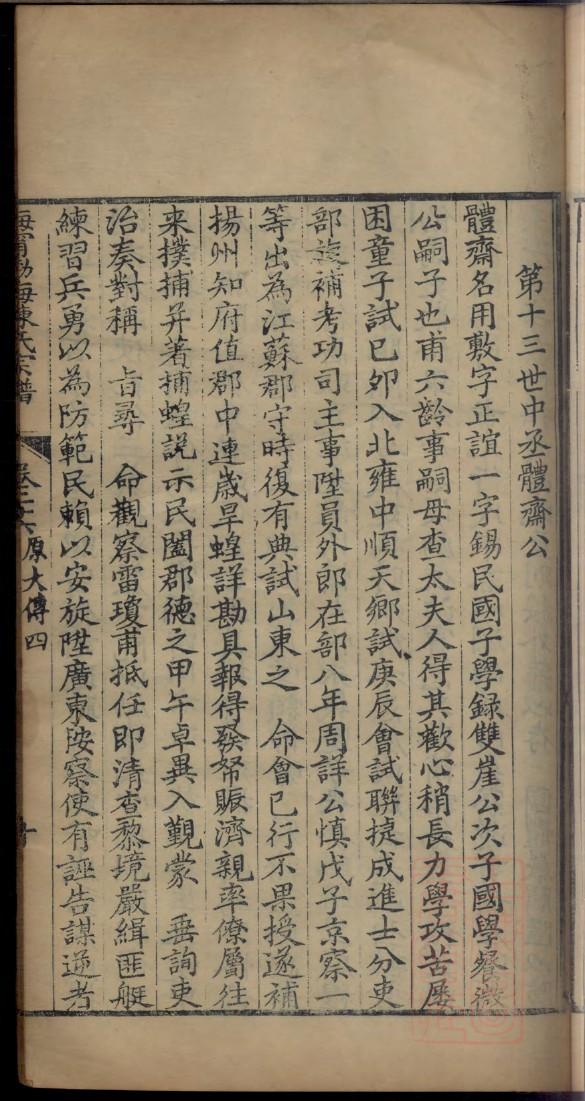 第十三世中丞體齋公
體齋名用敷字正誼一字錫民國子學録雙崖公次子國學餐微
公嗣子也甫六齡事嗣母查太夫人得其歡心稍長力學攻苦屢
困童子試已夘入北雍中順天鄉試庚辰會試聯捷成進士分吏
部旋補考功司主事陞員外郎在部八年周詳公慎戊子京察一
等出為江蘇郡守時復有典試山東之　命會已行不果授遂補
揚州知府值郡中連歲旱蝗詳勘具報得發帑賑濟親率僚屬往
来撲捕并著捕蝗説示民闔郡德之甲午卓異入覲蒙　垂詢吏
治奏對稱　旨尋　命觀察雷瓊甫抵任即清查黎境嚴緝匪艇
練習兵勇以為防範民賴以安旋陞廣東按察使有誣告謀逆者
海寧渤海陳氏宗譜　卷二十六原大傳四